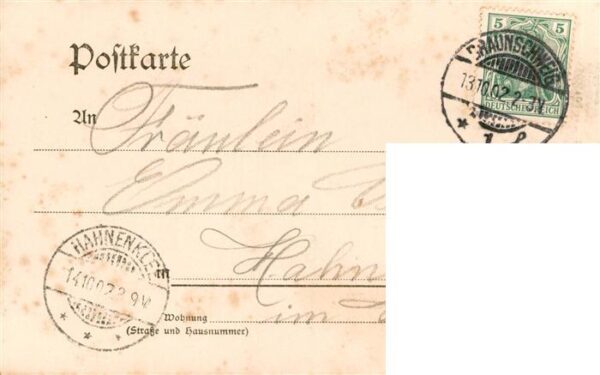 Postkarte
5 5
DEUTSCHES REICH
BRAUNSCHWEIG
13.10.02.2-3N.
* 1
An Fräulein
Emma
Hahn
im
in
HAHNENKLEE
14.10.02.8-9V.
* * *
Wohnung
(Straße und Hausnummer)